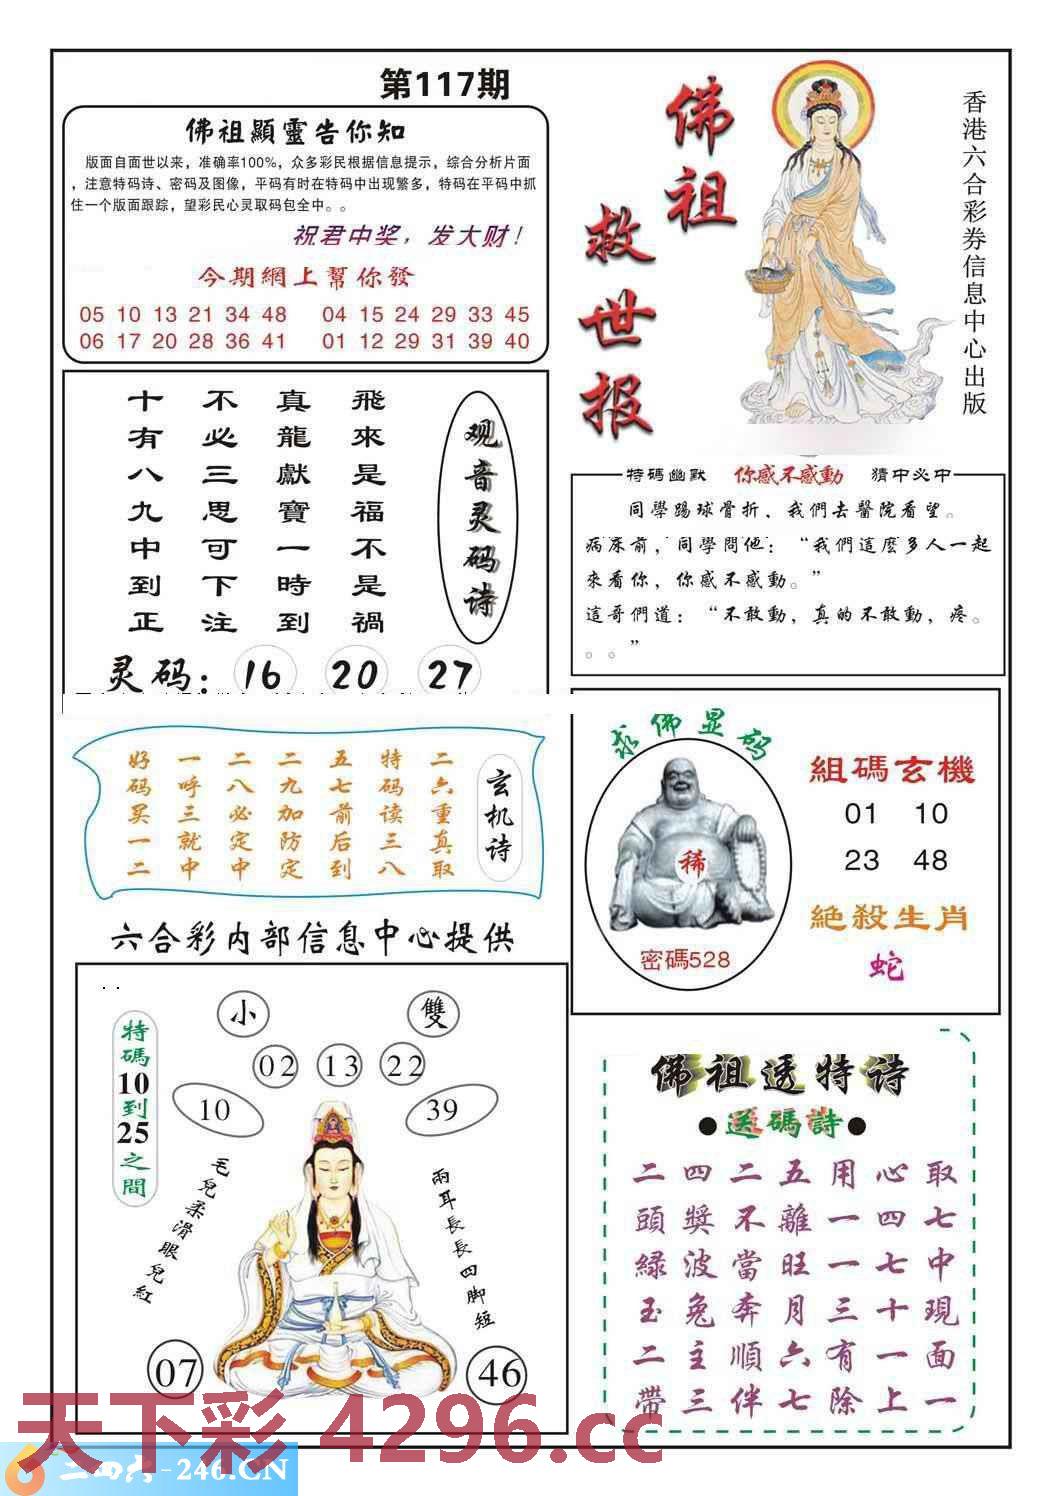 第117期
佛祖顯靈告你知
版面自面世以来，准确率100%，众多彩民根据信息提示，综合分析片面
，注意特码诗、密码及图像，平码有时在特码中出现繁多，特码在平码中抓
住一个版面跟踪，望彩民心灵取码包全中。。
祝君中奖，发大财！
今期網上幫你發
05 10 13 21 34 48 04 15 24 29 33 45
06 17 20 28 36 41 01 12 29 31 39 40
佛祖
救世报
香港六合彩券信息中心出版
观音灵码诗
飛來是福不是禍
真龍獻寶一時到
不必三思可下注
十有八九中到正
灵码：16 20 27
特碼幽默 你感不感動 猜中必中
同學踢球骨折，我們去醫院看望。
病床前，同學問他：“我們這麼多人一起
來看你，你感不感動。”
這哥們道：“不敢動，真的不敢動，疼。
。。”
玄机诗
二六重真取
特码读三八
五七前后到
二九加防定
二八必定中
一呼三就中
好码买一二
求佛显码
稀
密碼528
組碼玄機
01 10
23 48
絕殺生肖
蛇
六合彩内部信息中心提供
特碼10到25之間
小
雙
02 13 22
10
39
毛兒柔滑眼兒紅
兩耳長長四脚短
07
46
佛祖透特诗
●送碼詩●
二四二五用心取
頭獎不離一四七
緑波當旺一七中
玉兔奔月三十現
二主順六有一面
帶三伴七除上一
天下彩 4296.cc
二四六-246.CN